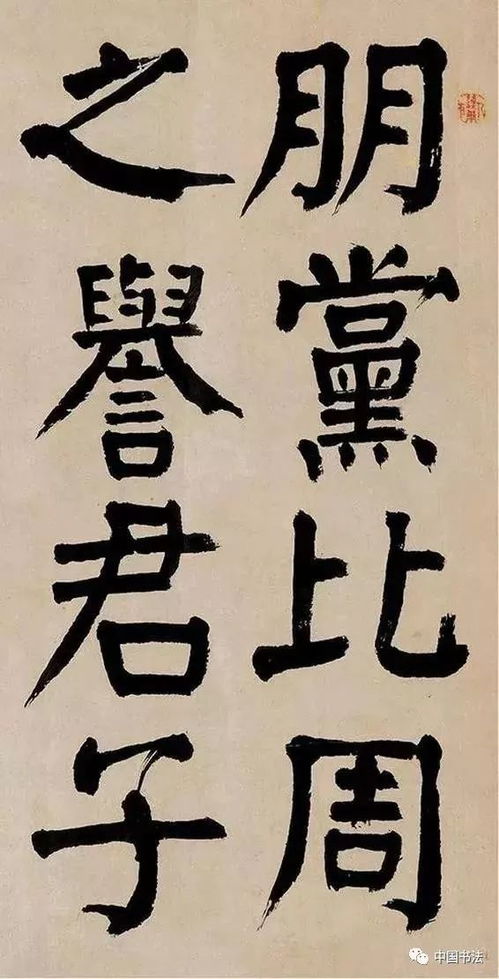 朋黨比周
之譽君子
中国书法